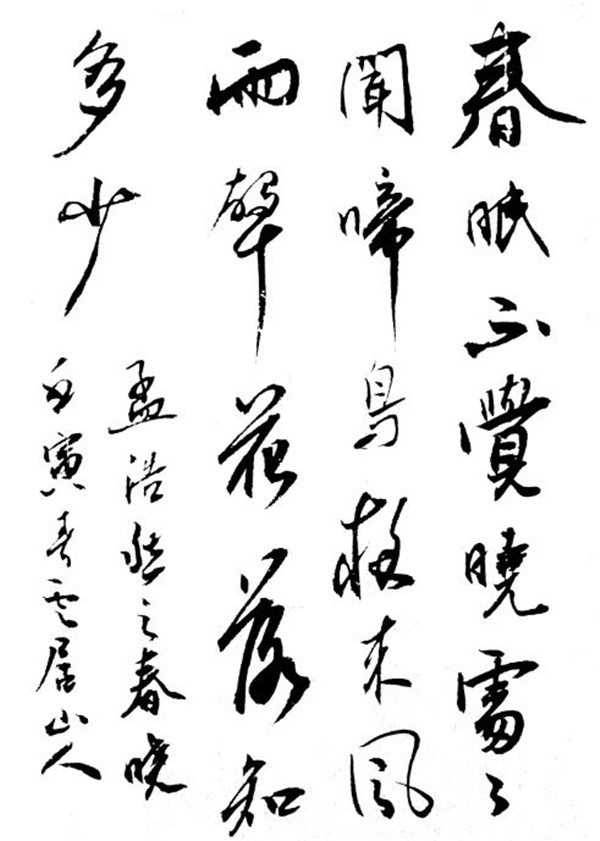 春眠不覺曉處々
聞啼鳥夜来風
雨聲花落知
多少
孟浩然之春曉
壬寅春雲居山人